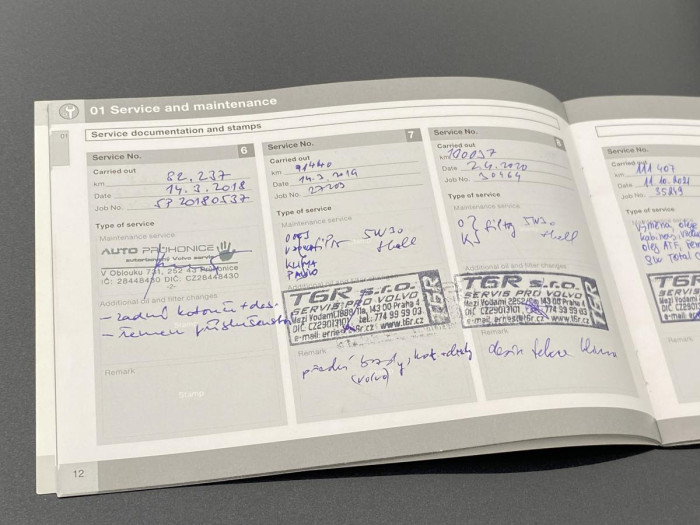 01 Service and maintenance
01
Service documentation and stamps
Service No. 6
Carried out
km 82.237
Date 14.3.2018
Job No. SP20180537
Type of service
Maintenance service
AUTO PRŮHONICE
autorizovaný Volvo servis
V Oblouku 731, 252 43 Průhonice
IČ: 28448430 DIČ: CZ28448430
-2-
Additional oil and filter changes
- zadní kotouče + des.
- řemen příslušenství
Remark
Stamp
Service No. 7
Carried out
km 91440
Date 14.3.2019
Job No. 27203
Type of service
Maintenance service
OLEJ 5W30
Shell
KLIMA
Additional oil and filter changes
T6R s.r.o.
SERVIS PRO VOLVO
Mezi Vodami 143 00 Praha 4
DIČ CZ29013101, tel.: 774 99 99 03
www.t6r.cz
T6R
Remark
přední brzdy, kot + desky
(Volvo)
Service No. 8
Carried out
km 100037
Date 2.4.2020
Job No. 30164
Type of service
Maintenance service
filtry 5W30
Shell
Additional oil and filter changes
T6R s.r.o.
SERVIS PRO VOLVO
143 00 Praha 4
DIČ CZ29013101, 774 99 99 03
www.t6r.cz
T6R
Remark
klima
Service No.
Carried out
km 111 407
Date 11.10.2021
Job No. 35849
Type of service
výměna, oleje
olej ATF,
Total
T6R
SERVIS
Remark
12